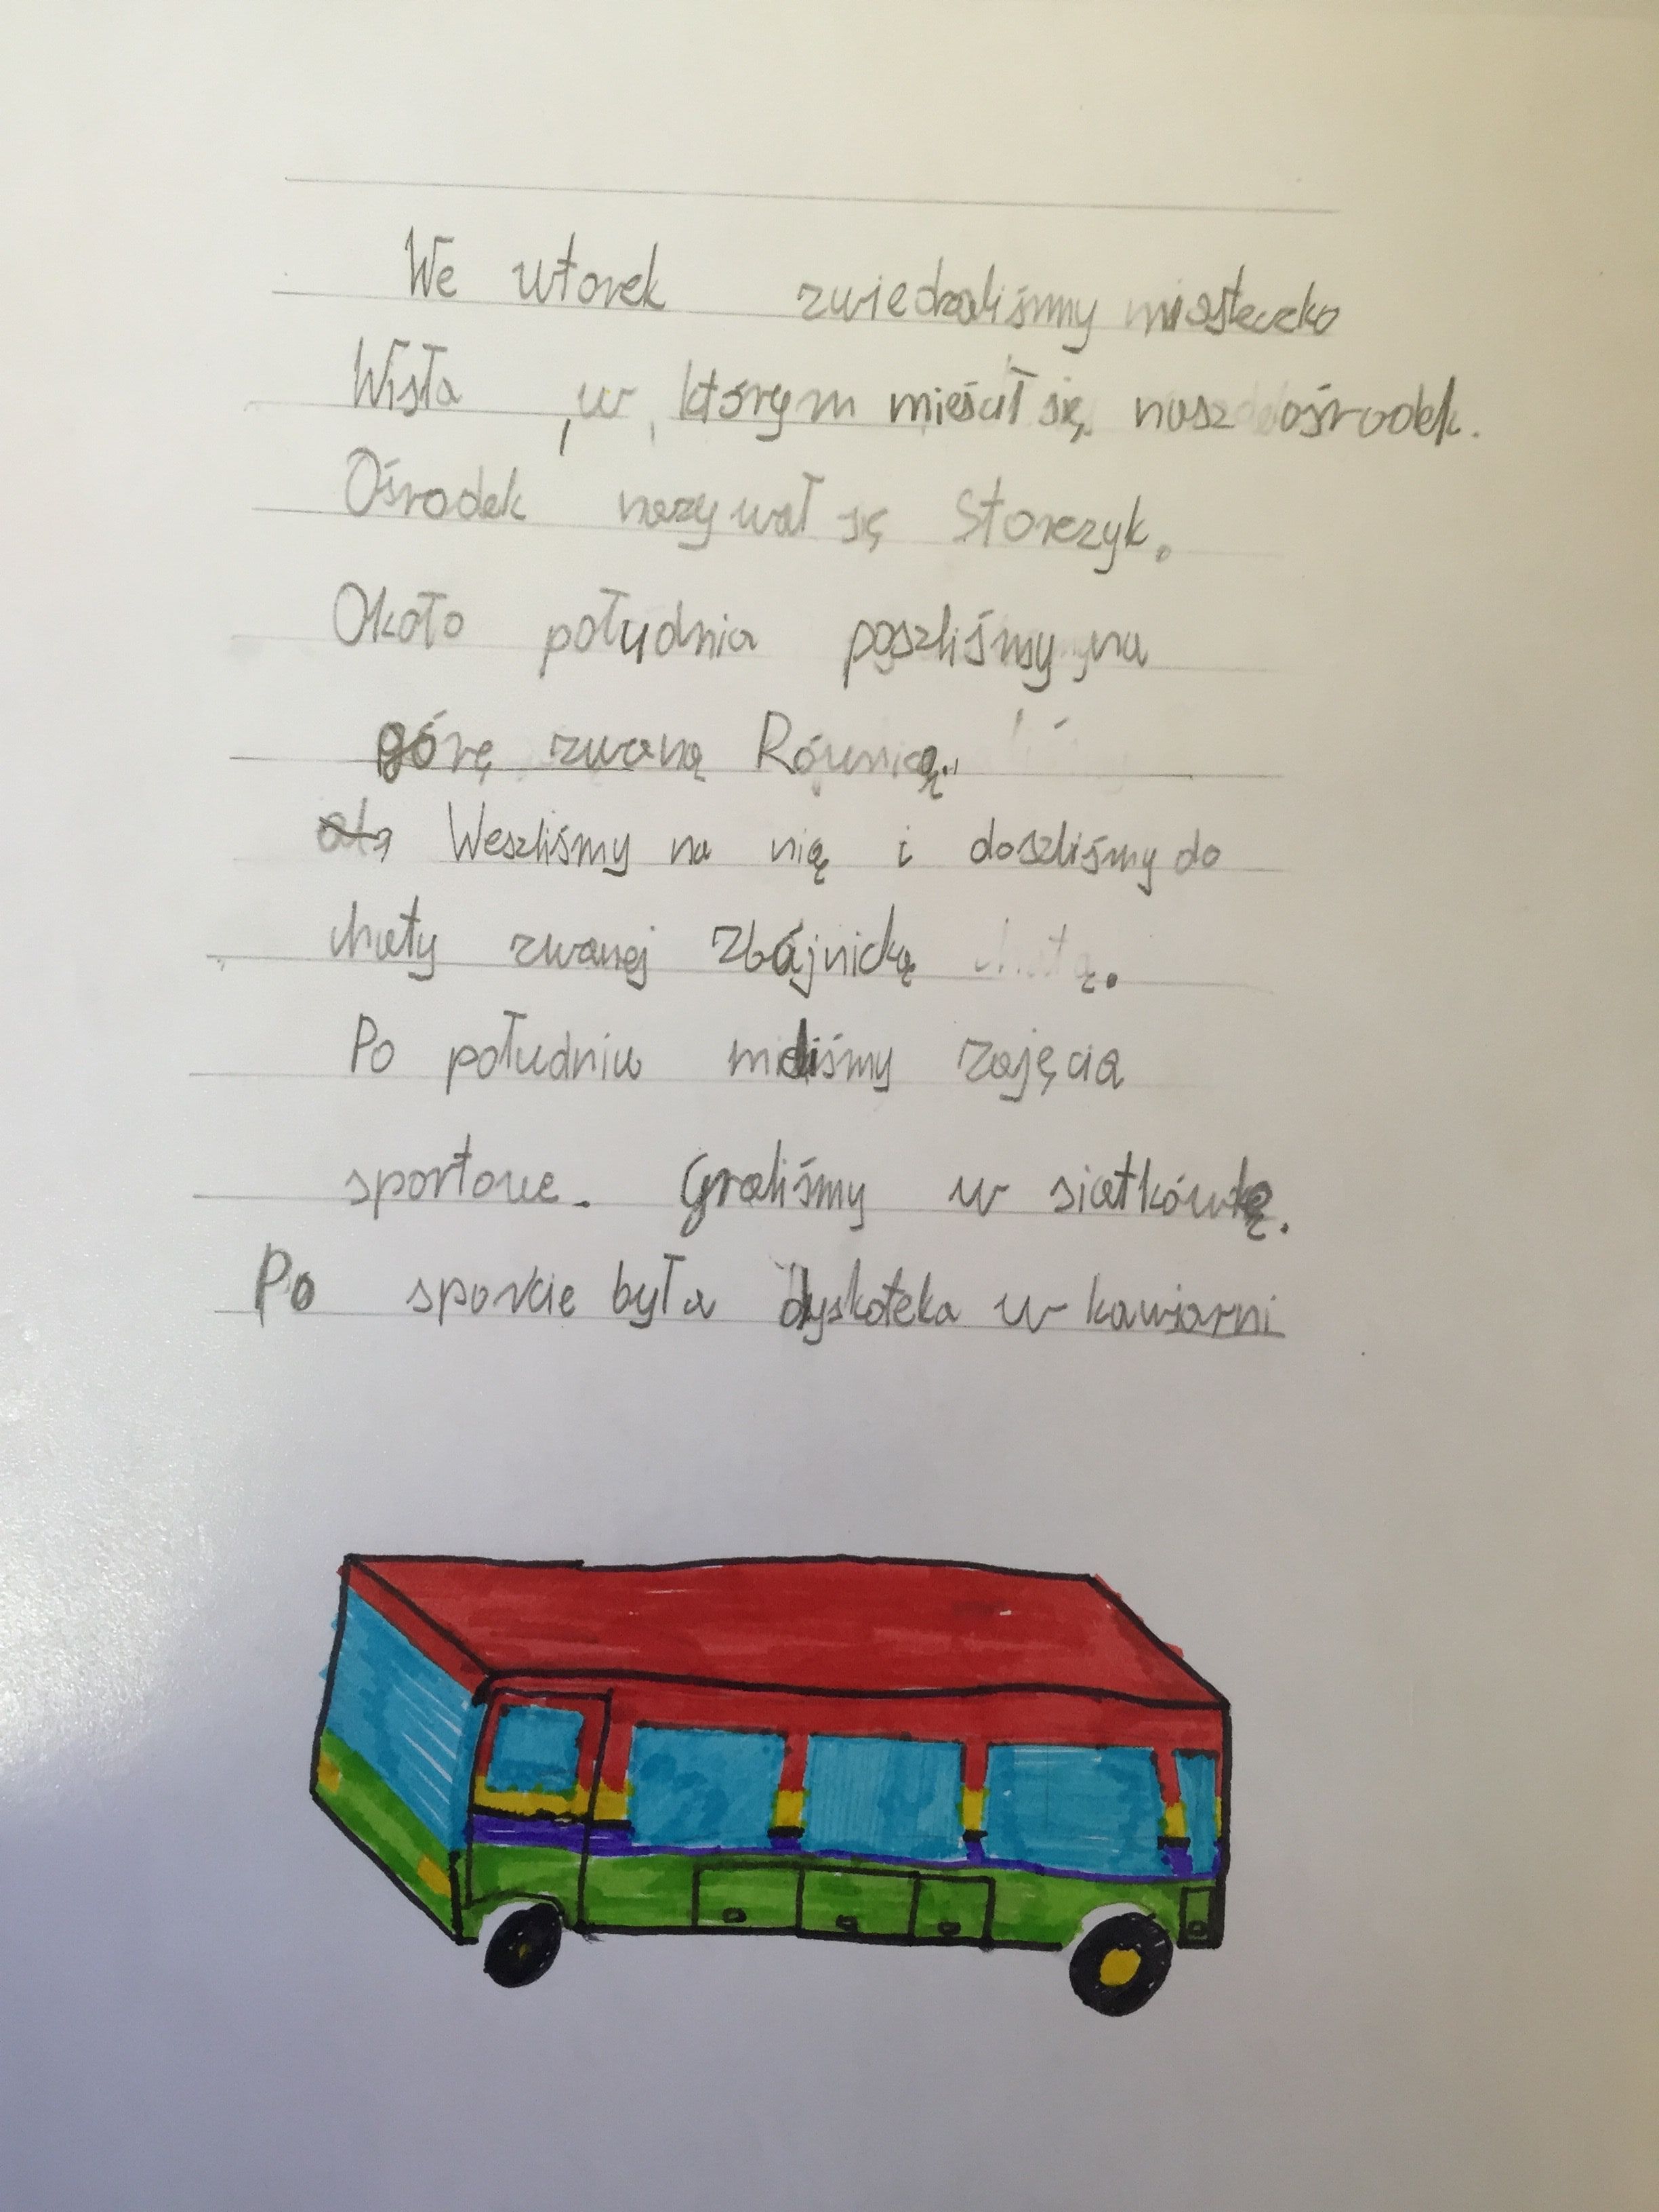 We wtorek zwiedzaliśmy miasteczko
Wisła , w którym mieścił się nasz ośrodek.
Ośrodek nazywał się Storczyk.
Około południa poszliśmy na
górę zwaną Równicą.
Weszliśmy na nią i doszliśmy do
chaty zwanej Zbójnicką chatą.
Po południu mieliśmy zajęcia
sportowe. Graliśmy w siatkówkę.
Po sporcie była dyskoteka w kawiarni